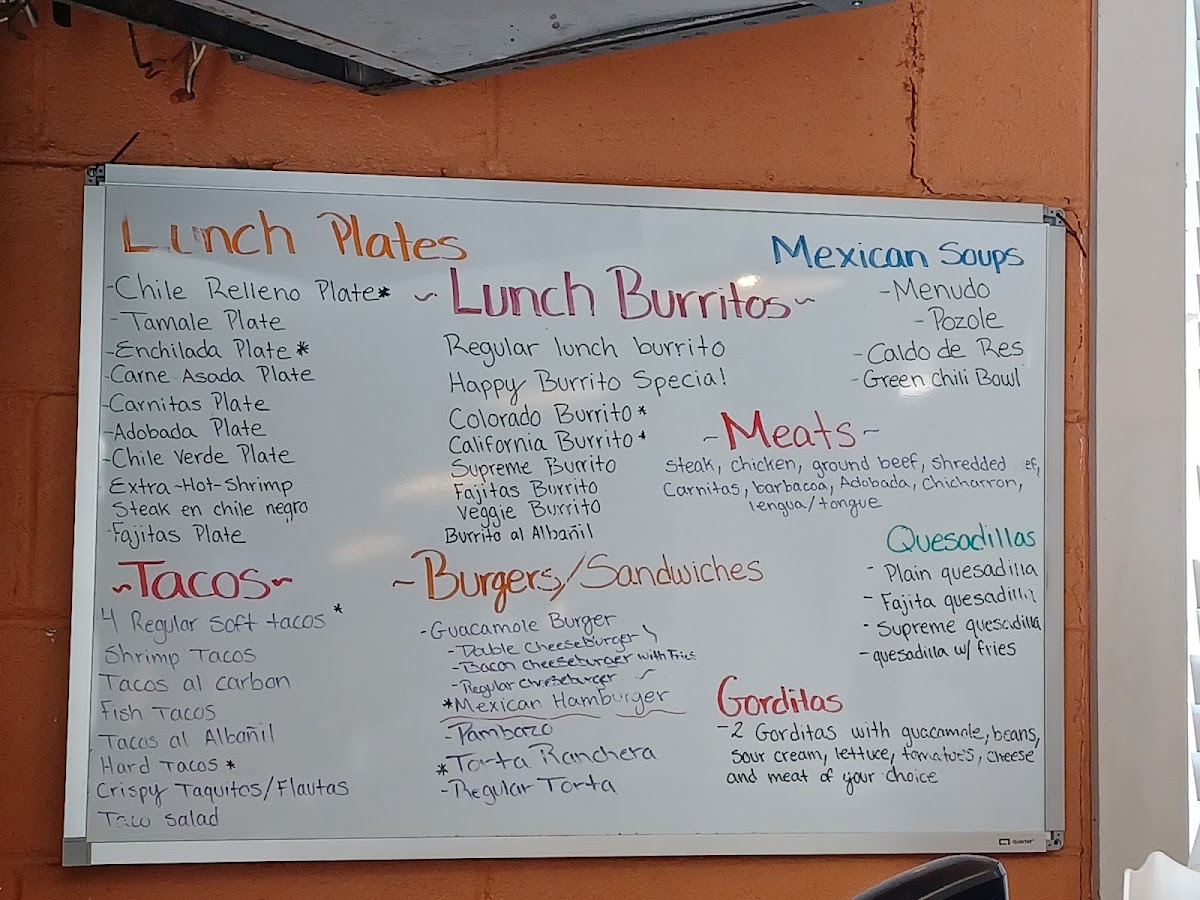 Lunch Plates
-Chile Relleno Plate*
-Tamale Plate
-Enchilada Plate*
-Carne Asada Plate
-Carnitas Plate
-Adobada Plate
-Chile Verde Plate
Extra-Hot-Shrimp
Steak en chile negro
-Fajitas Plate
~Tacos~
4 Regular Soft tacos*
Shrimp Tacos
Tacos al carbon
Fish Tacos
Tacos al Albañil
Hard Tacos*
Crispy Taquitos/Flautas
Taco salad
~Lunch Burritos~
Regular lunch burrito
Happy Burrito Special
Colorado Burrito*
California Burrito*
Supreme Burrito
Fajitas Burrito
Veggie Burrito
Burrito al Albañil
~Burgers/Sandwiches
-Guacamole Burger
-Double Cheeseburger
-Bacon cheeseburger with Fries
-Regular cheeseburger
*Mexican Hamburger
-Pambazo
*Torta Ranchera
-Regular Torta
Mexican Soups
-Menudo
-Pozole
-Caldo de Res
-Green chili Bowl
~Meats~
Steak, chicken, ground beef, shredded ef,
Carnitas, barbacoa, Adobada, Chicharron,
lengua/tongue
Quesadillas
- Plain quesadilla
- Fajita quesadilla
- Supreme quesadilla
- quesadilla w/ fries
Gorditas
-2 Gorditas with guacamole, beans,
sour cream, lettuce, tomatoes, cheese
and meat of your choice
Quartet